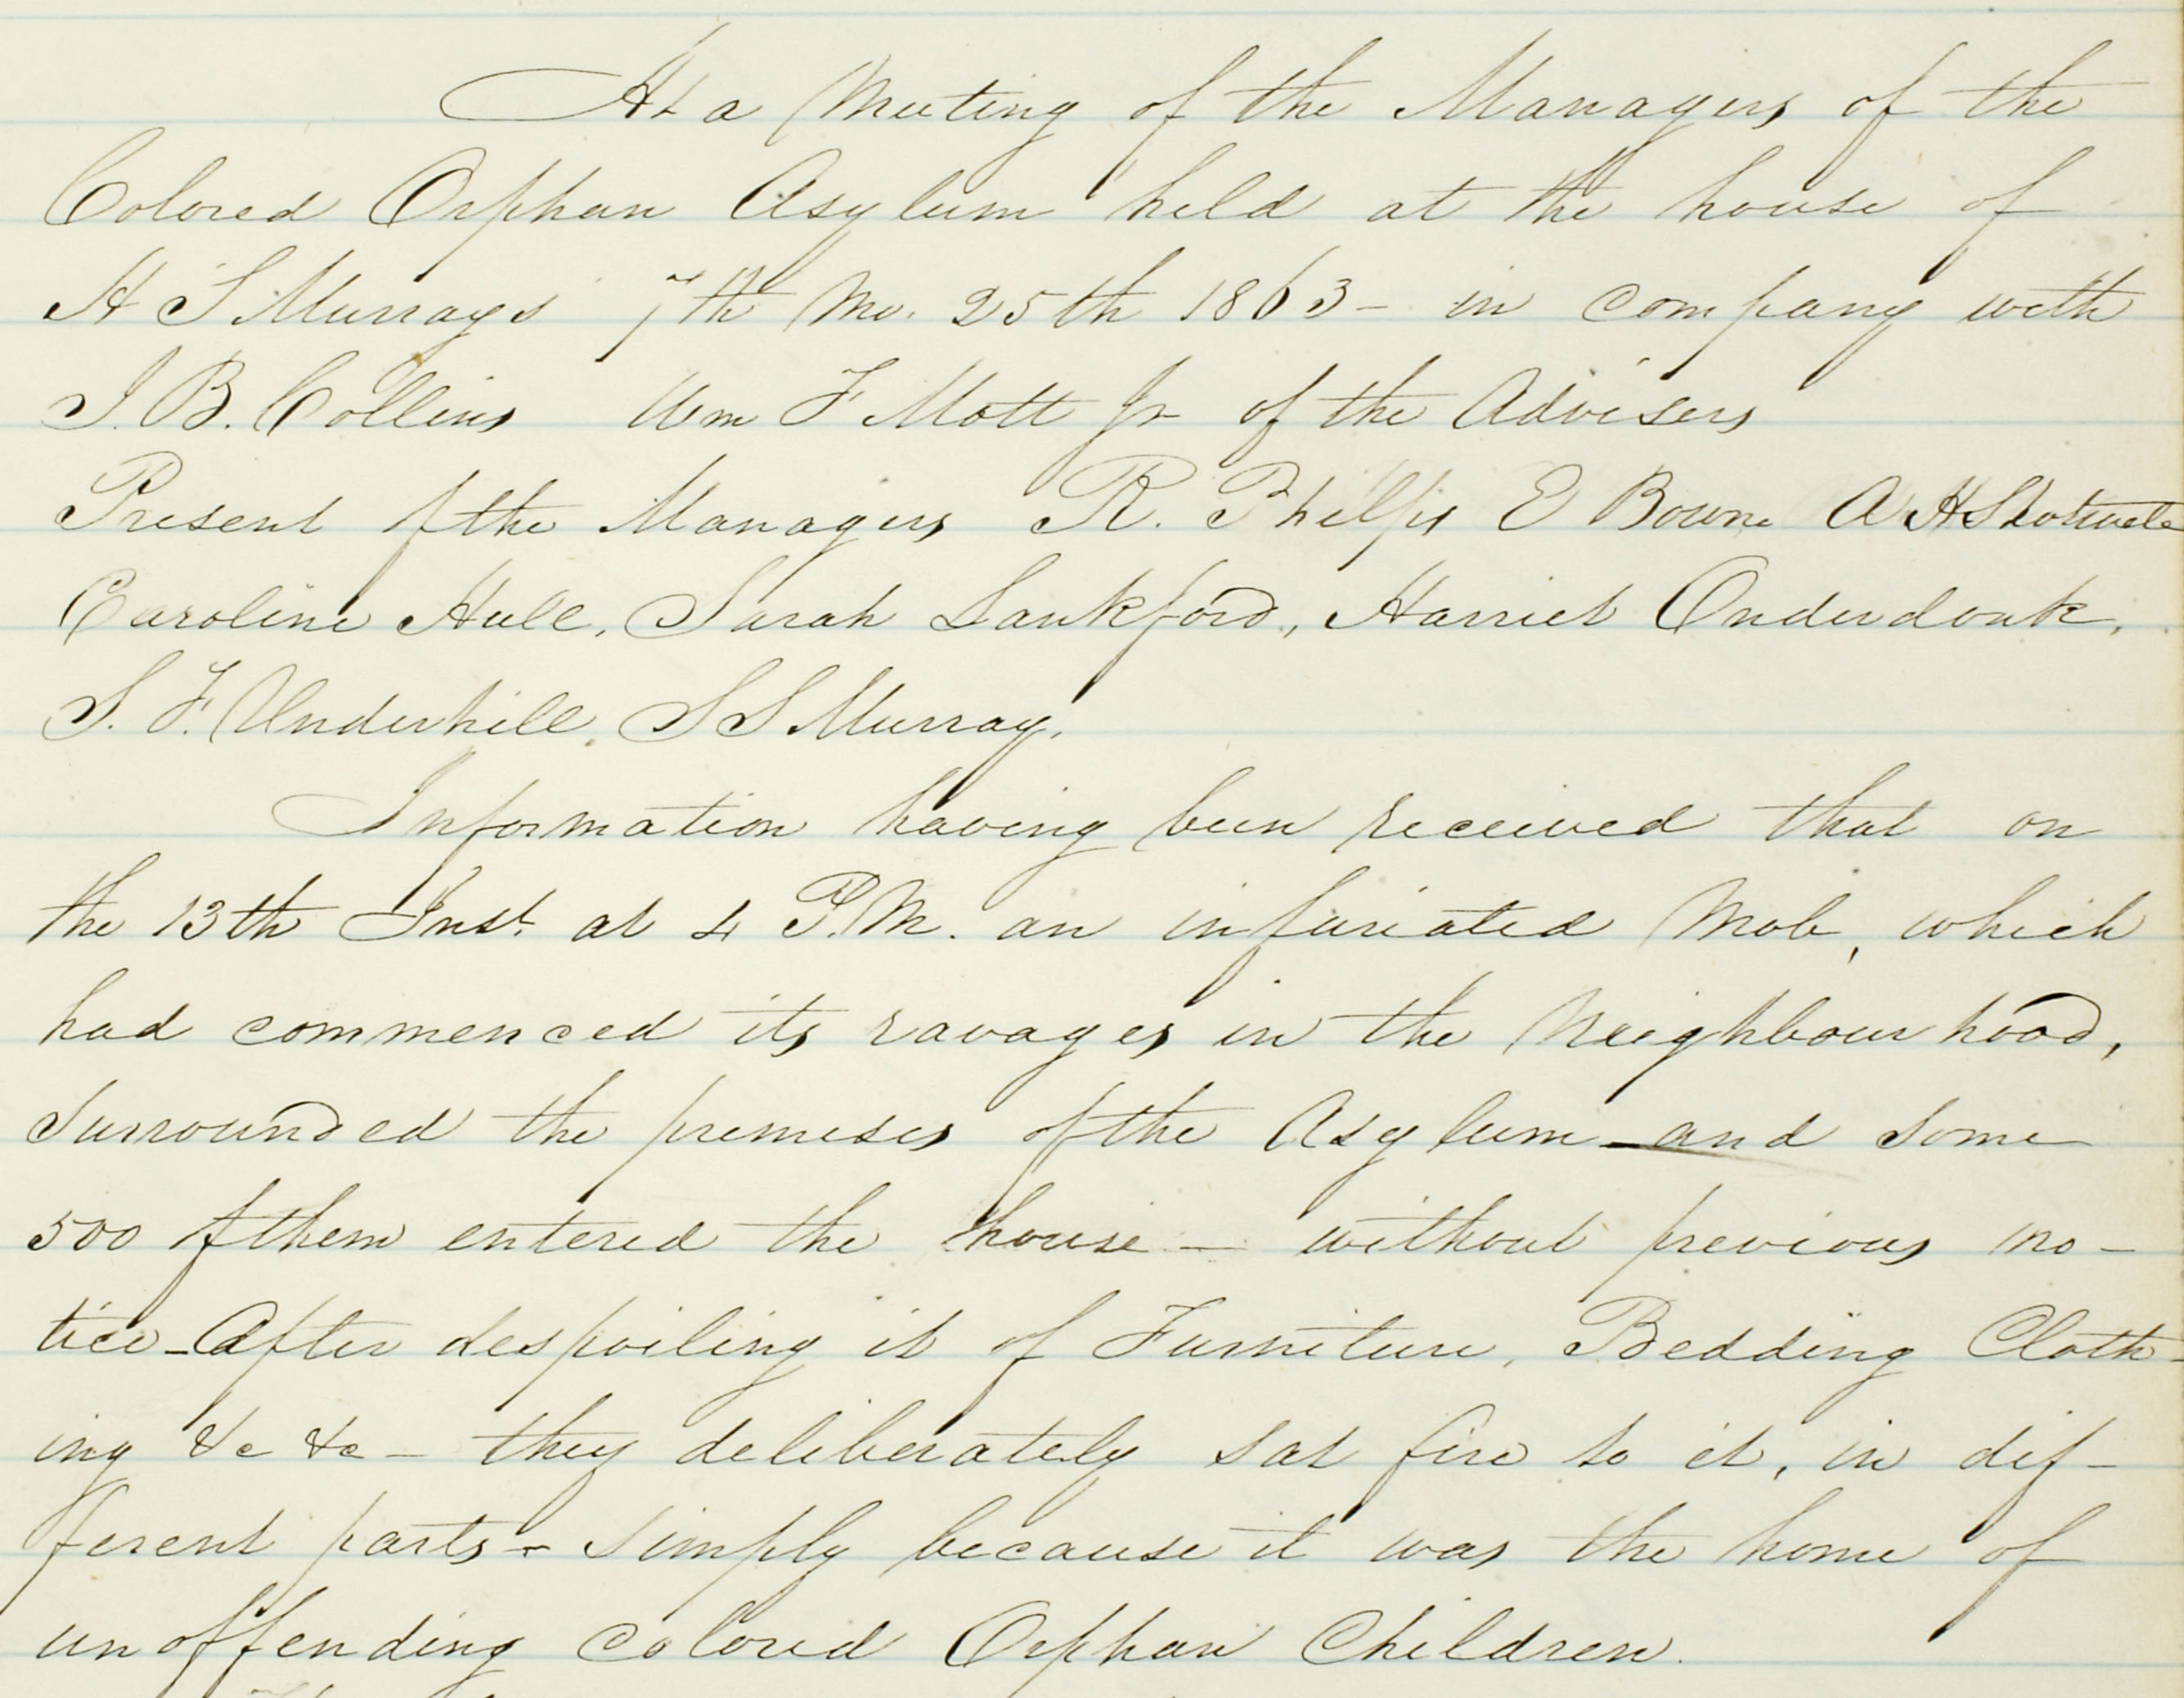 At a Meeting of the Managers of the
Colored Orphan Asylum held at the house of
H S Murrays 7th Mo. 25th 1863 - in company with
J. B. Collins Wm F Mott Jr of the Advisers
Present of the Managers R. Phelps E Bowne A H Shotwell
Caroline Hull, Sarah Lankford, Harriet Onderdonk,
S. F. Underhill, S S Murray.
Information having been received that on
the 13th Inst. at 4 P.M. an infuriated Mob, which
had commenced its ravages in the Neighbourhood,
surrounded the premises of the Asylum - and some
500 of them entered the house - without previous no-
tice - After despoiling it of Furniture, Bedding Cloth-
ing &c &c - they deliberately sat fire to it, in dif-
ferent parts - simply because it was the home of
unoffending colored Orphan Children.